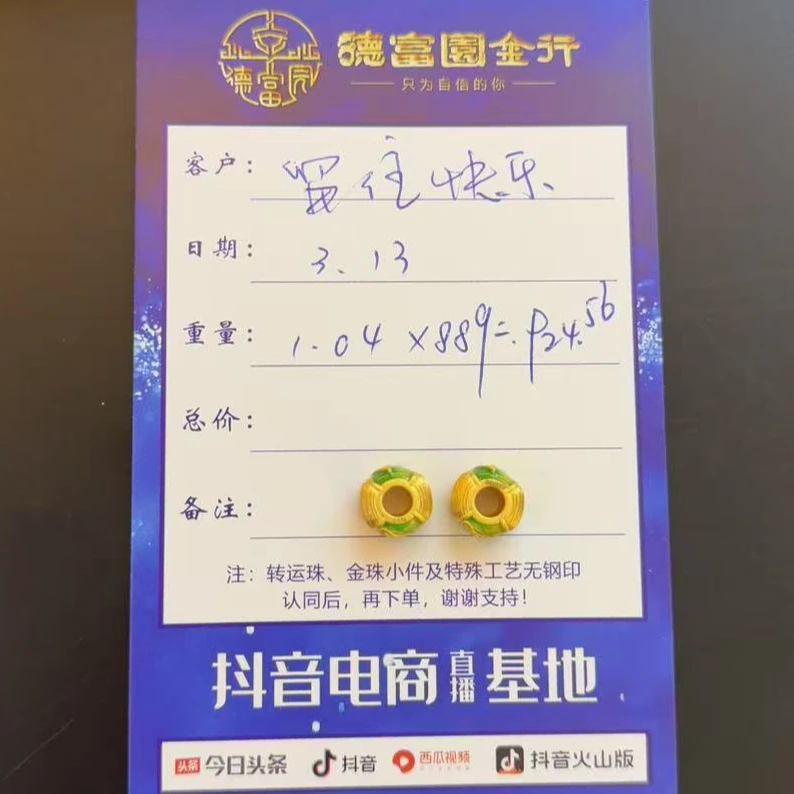 德富園金行
只为自值的你
客户：留住快乐
日期：3.13
重量：1.04 ×889=924.56
总价：
备注：
注：转运珠、金珠小件及特殊工艺无钢印
认同后，再下单，谢谢支持！
抖音电商直播基地
头条 今日头条 抖音 西瓜视频 抖音火山版